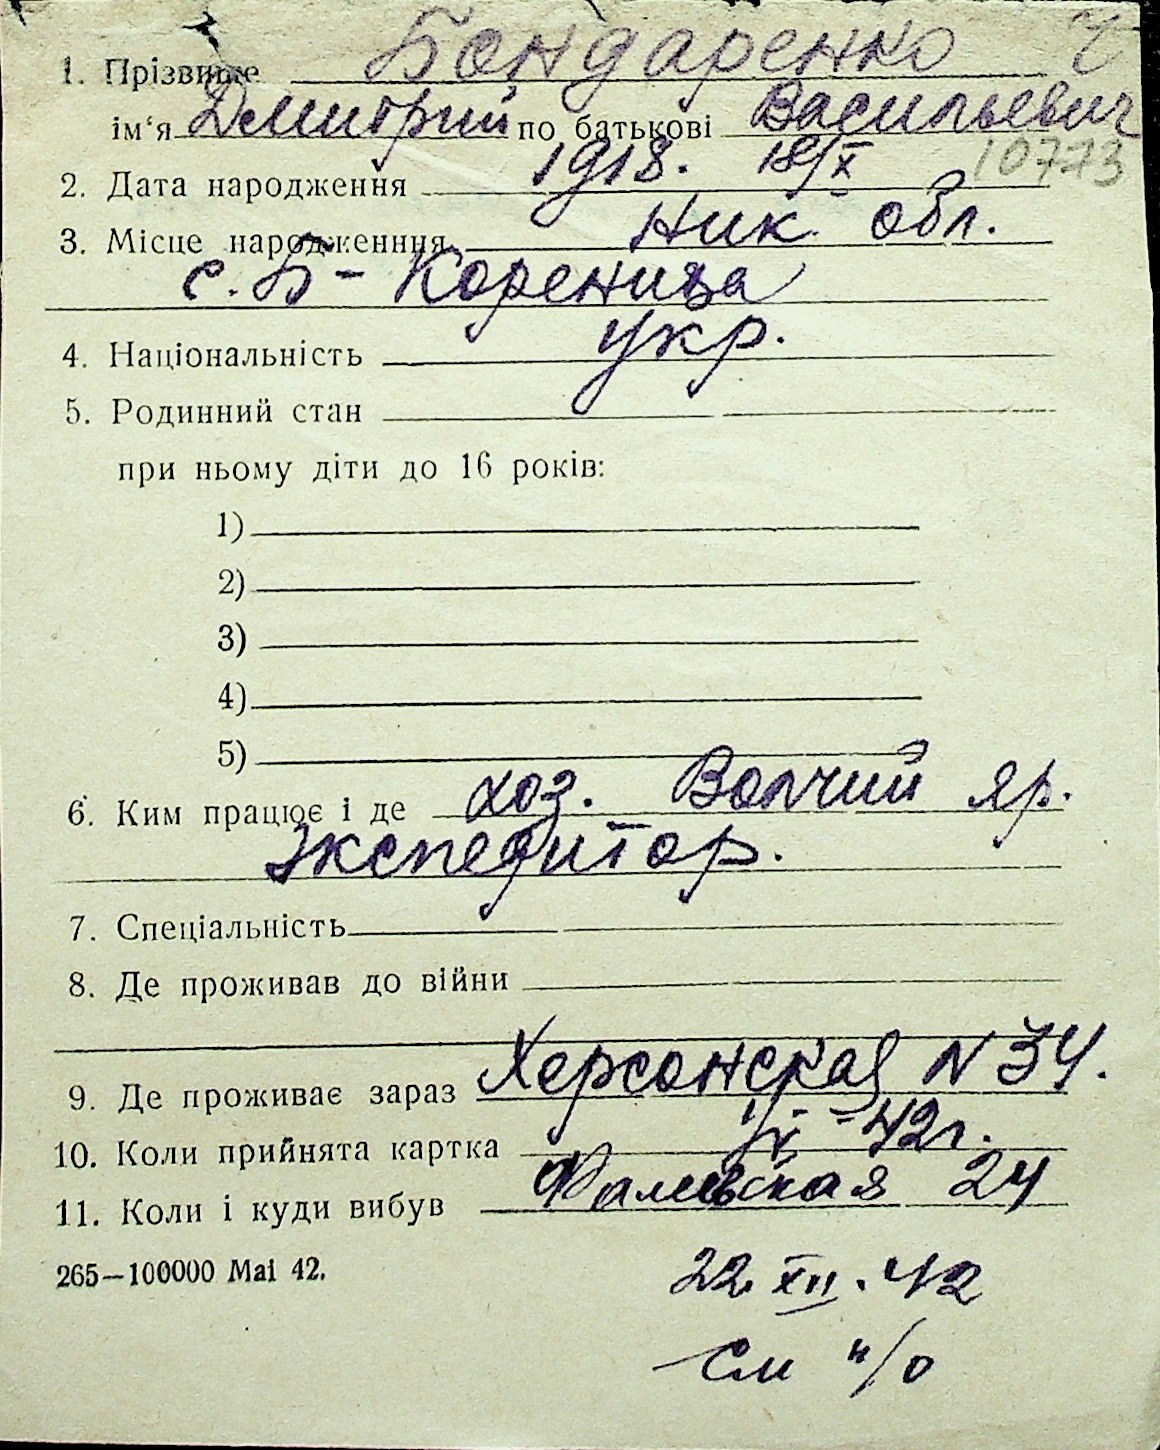 1. Прізвище Бондаренко
ім'я Дмитрий по батькові Васильевич
10773
2. Дата народження 1918. 18/X
3. Місце народженння Ник. обл.
с. Б-Корениха
4. Національність укр.
5. Родинний стан
при ньому діти до 16 років:
1)
2)
3)
4)
5)
6. Ким працює і де хоз. Волчий яр.
экспедитор.
7. Спеціальність
8. Де проживав до війни
9. Де проживає зараз Херсонская N 34.
10. Коли прийнята картка -42г.
11. Коли і куди вибув Фалеевская 24
265—100000 Mai 42.
22 XII. 42
см н/о